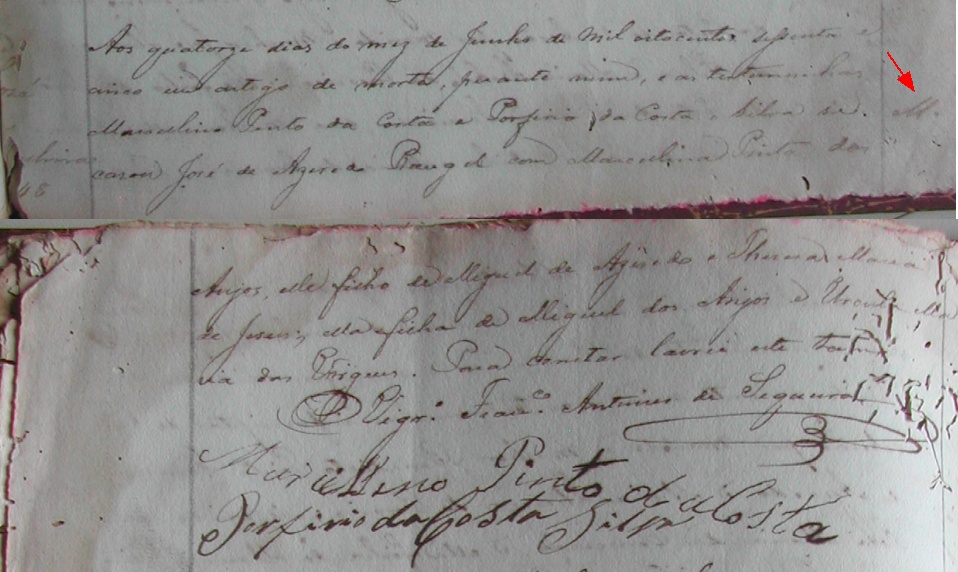 Aos quatorze dias do mez de Junho de mil oitocentos sessenta e
cinco em artigo de morte, perante mim, e as testemunhas
Marcelino Pinto da Costa e Porfirio da Costa e Silva se
M.
casou José de Azeredo Rangel com Marcelina Pinto dos
Anjos, elle filho de Miguel de Azeredo e Thereza Maria
de Jesus, ella filha de Miguel dos Anjos e Ursula Ma
ria das Virgens. Para constar lavrei este
O Vigr.º Fran.co Antunes de Sequeira
Marcelino Pinto da Costa
Porfirio da Costa Silva